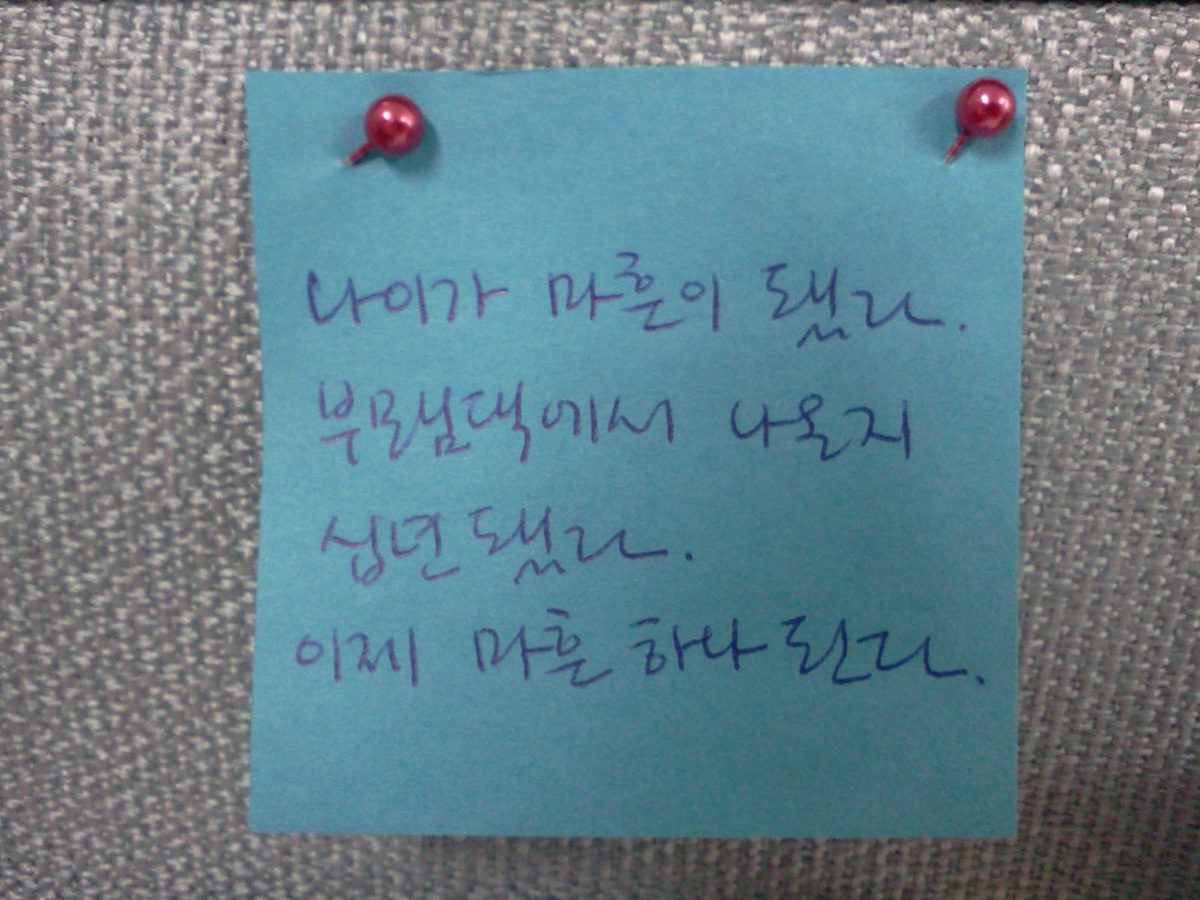 나이가 마흔이 됐다.
부모님댁에서 나온지
십년 됐다.
이제 마흔 하나 된다.